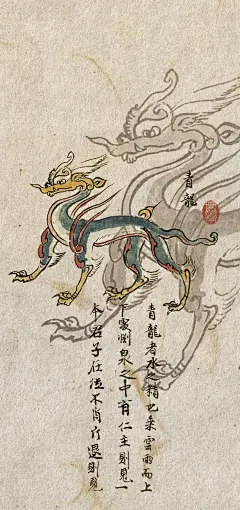 青龍
青龍者水之精也乘雲雨而上
下處淵泉之中有仁主則見一
本君子在位不肖斥退則見